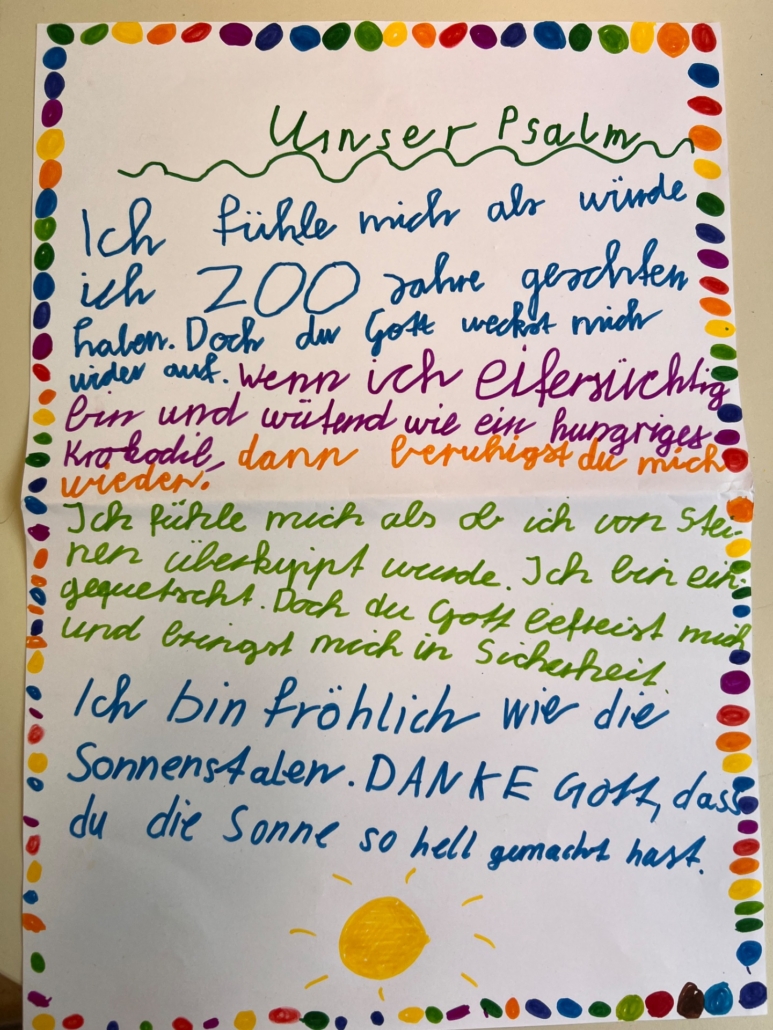 Unser Psalm
Ich fühle mich als würde
ich 200 Jahre geschlten
haben. Doch du Gott weckst mich
wider auf. Wenn ich eifersüchtig
bin und wütend wie ein hungriges
Krokodil, dann beruhigst du mich
wieder.
Ich fühle mich als ob ich von Stei-
nen überkippt wurde. Ich bin ein-
gequetscht. Doch du Gott befreist mich
und bringst mich in Sicherheit.
Ich bin fröhlich wie die
Sonnenstalen. DANKE Gott, dass
du die Sonne so hell gemacht hast.